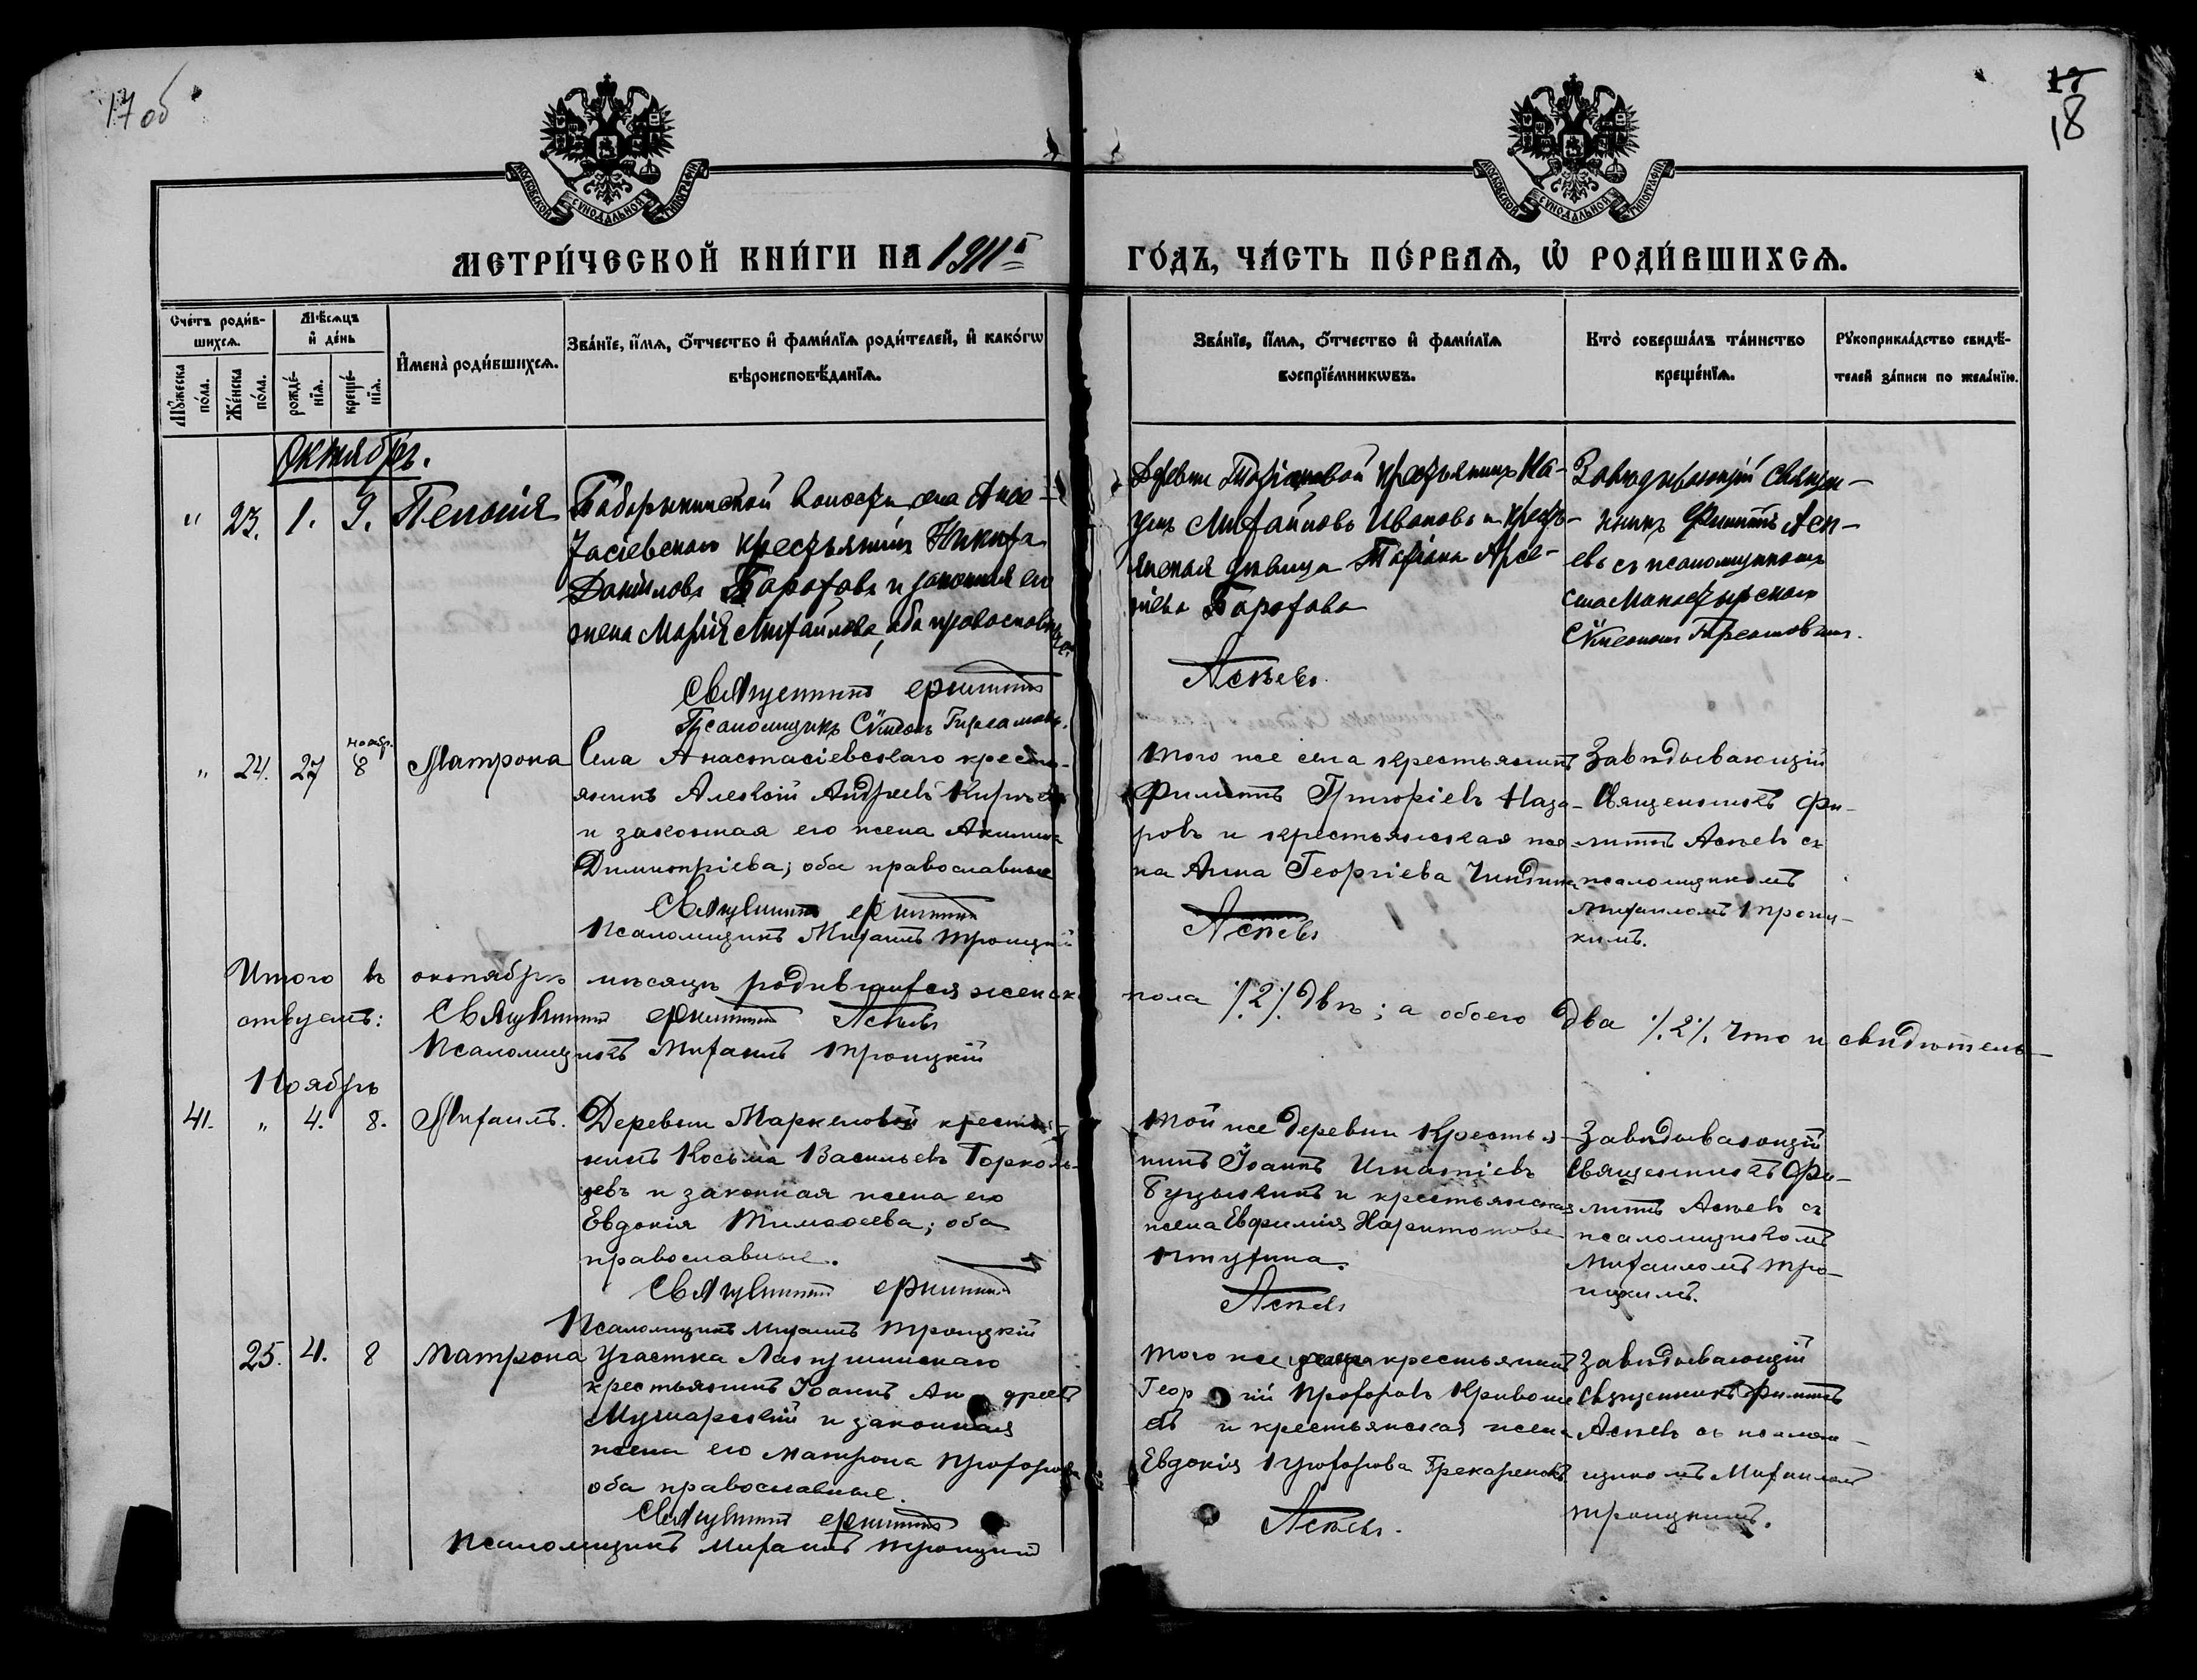 17 об
17
18
МОСКОВСКОЙ СУНОДАЛЬНОЙ ТИПОГРАФІИ
МОСКОВСКОЙ СУНОДАЛЬНОЙ ТИПОГРАФІИ
МЕТРИ́ЧЕСКОЙ КНИ́ГИ НА 1911й ГО́ДЪ, ЧА́СТЬ ПЕ́РВАѦ, Ѡ҆ РОДИ́ВШИХСѦ.
Сче́тъ роди́в-
шихсѧ.
Мѣ́сѧцъ
и҆ де́нь
Мꙋ́жеска по́ла.
Же́нска по́ла.
рожде́-
нїѧ.
креще́-
нїѧ.
И҆мена̀ роди́вшихсѧ.
Зва́нїе, и҆́мѧ, ѻ҆́тчество и҆ фами́лїѧ роди́телей, и҆ како́гѡ
вѣроисповѣ́данїѧ.
Зва́нїе, и҆́мѧ, ѻ҆́тчество и҆ фами́лїѧ
воспрїе́мникѡвъ.
Кто̀ соверша́лъ та́инство
креще́нїѧ.
Рꙋкоприкла́дство свидѣ́-
телей за́писи по жела́нїю.
Октябрь.
" 23. 1. 9. Пелагія
волости села Анас-
тасіевскаго крестьянинъ Никита
Даниловъ и законная его
жена Марія Михайлова, оба православные.
Священникъ Филиппъ
Псаломщикъ Сѵмеонъ
Деревни крестьянинъ На-
умъ Михайловъ Ивановъ и кресть-
янская девица Татіана Арсе-
ніева
Аскевъ
Завѣдывающій священ-
никъ Филиппъ Аск-
евъ съ псаломщикомъ
села Монастырскаго
Сѵмеономъ
" 24. 27 ноябр. 8 Матрона
Села Анастасіевскаго кресть-
янинъ Алексій Андреевъ
и законная его жена
Димитріева; оба православные
Священникъ Филиппъ
Псаломщикъ Михаилъ Троицкій
Того же села крестьянинъ
Филиппъ Григоріевъ Наза-
ровъ и крестьянская же-
на Анна Георгіева
Аскевъ
Завѣдывающій
Священникъ Фи-
липпъ Аскевъ съ
псаломщикомъ
Михаиломъ Троиц-
кимъ.
Итого въ октябрѣ мѣсяцѣ родившихся женск. пола ٪2٪ двѣ; а обоего два ٪2٪. Что и свидѣтель-
ствуемъ: Священникъ Филиппъ Аскевъ
Псаломщикъ Михаилъ Троицкій
Ноябрь
41. " 4. 8. Михаилъ.
Деревни Маркеловой кресть-
янинъ Косьма Васильевъ
и законная жена его
Евдокія Тимоѳеева; оба
православные.
Священникъ Филиппъ
Псаломщикъ Михаилъ Троицкій
Той же деревни кресть-
янинъ Іоаннъ Игнатіевъ
и крестьянская
жена Евфимія Харитонова
Аскевъ
Завѣдывающій
Священникъ Фи-
липпъ Аскевъ съ
псаломщикомъ
Михаиломъ Тро-
ицкимъ.
25. 4. 8 Матрона
Участка
крестьянинъ Іоаннъ Андреевъ
и законная
жена его Матрона Прохорова
оба православные.
Священникъ Филиппъ
Псаломщикъ Михаилъ Троицкій
Того же крестьянинъ
Георгій Прохоровъ
и крестьянская жена
Евдокія Прохорова
Аскевъ.
Завѣдывающій
Священникъ Филиппъ
Аскевъ съ псалом-
щикомъ Михаиломъ
Троицкимъ.